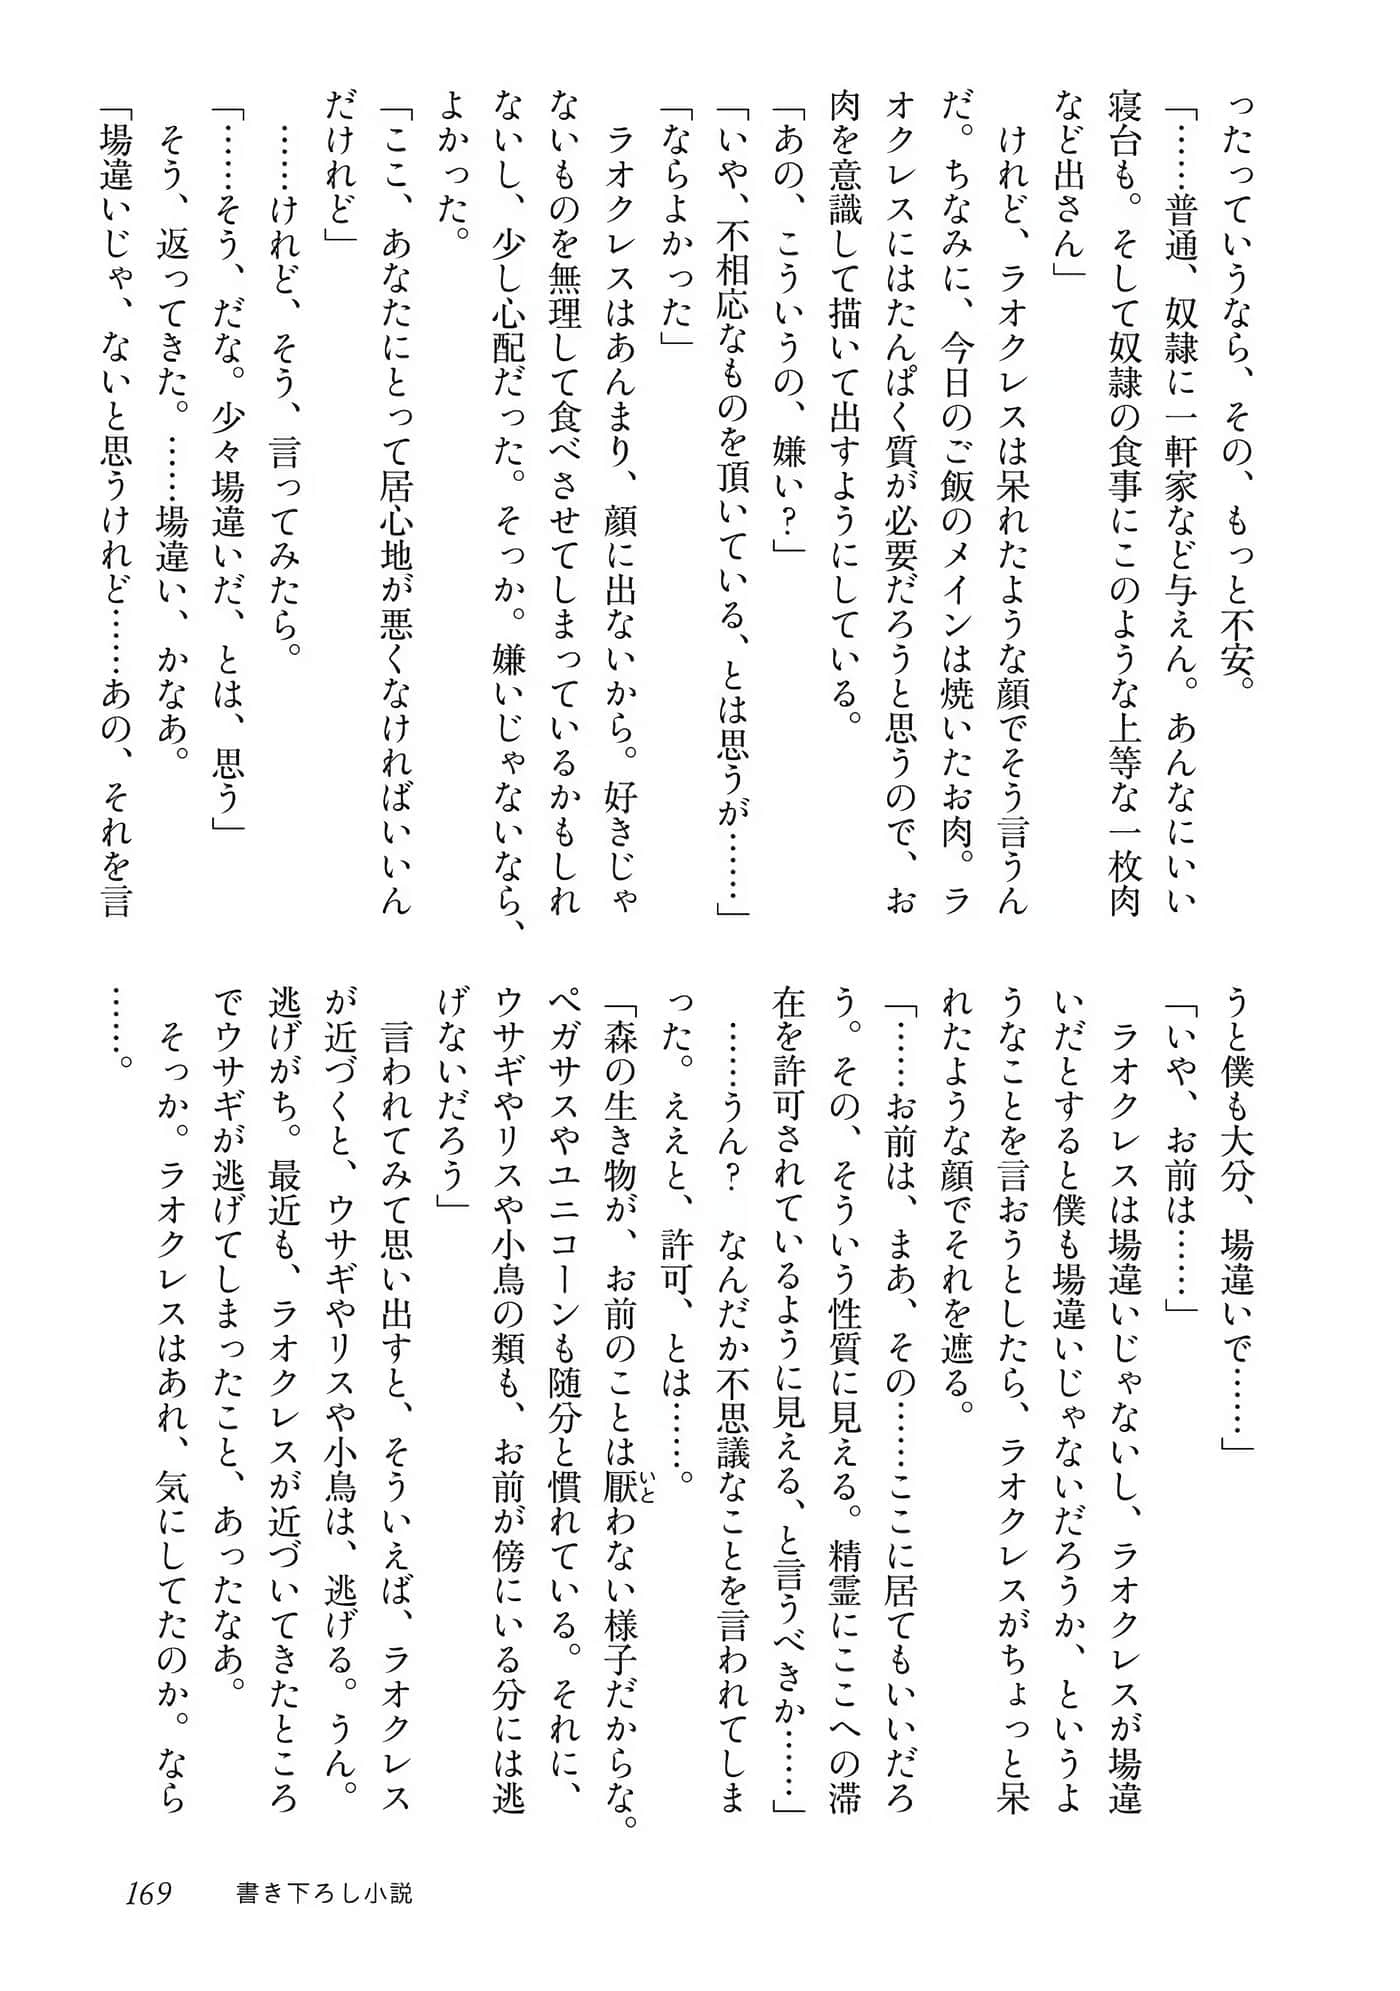 ったっていうなら、その、もっと不安。
「……普通、奴隷に一軒家など与えん。あんなにいい
寝台も。そして奴隷の食事にこのような上等な一枚肉
など出さん」
　けれど、ラオクレスは呆れたような顔でそう言うん
だ。ちなみに、今日のご飯のメインは焼いたお肉。ラ
オクレスにはたんぱく質が必要だろうと思うので、お
肉を意識して描いて出すようにしている。
「あの、こういうの、嫌い？」
「いや、不相応なものを頂いている、とは思うが……」
「ならよかった」
　ラオクレスはあんまり、顔に出ないから。好きじゃ
ないものを無理して食べさせてしまっているかもしれ
ないし、少し心配だった。そっか。嫌いじゃないなら、
よかった。
「ここ、あなたにとって居心地が悪くなければいいん
だけれど」
　……けれど、そう、言ってみたら。
「……そう、だな。少々場違いだ、とは、思う」
　そう、返ってきた。……場違い、かなあ。
「場違いじゃ、ないと思うけれど……あの、それを言
うと僕も大分、場違いで……」
「いや、お前は……」
　ラオクレスは場違いじゃないし、ラオクレスが場違
いだとすると僕も場違いじゃないだろうか、というよ
うなことを言おうとしたら、ラオクレスがちょっと呆
れたような顔でそれを遮る。
「……お前は、まあ、その……ここに居てもいいだろ
う。その、そういう性質に見える。精霊にここへの滞
在を許可されているように見える、と言うべきか……」
　……うん？　なんだか不思議なことを言われてしま
った。ええと、許可、とは……。
「森の生き物が、お前のことは厭わない様子だからな。
ペガサスやユニコーンも随分と慣れている。それに、
ウサギやリスや小鳥の類も、お前が傍にいる分には逃
げないだろう」
　言われてみて思い出すと、そういえば、ラオクレス
が近づくと、ウサギやリスや小鳥は、逃げる。うん。
逃げがち。最近も、ラオクレスが近づいてきたところ
でウサギが逃げてしまったこと、あったなあ。
　そっか。ラオクレスはあれ、気にしてたのか。なら
……。
いと
169
書き下ろし小説